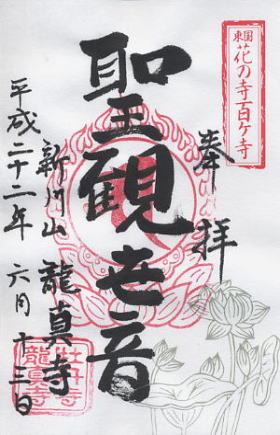 東国
花の寺百ヶ寺
奉拝
聖観世音
新川山 龍真寺
平成二十二年 六月十三日
牡丹寺
龍真寺